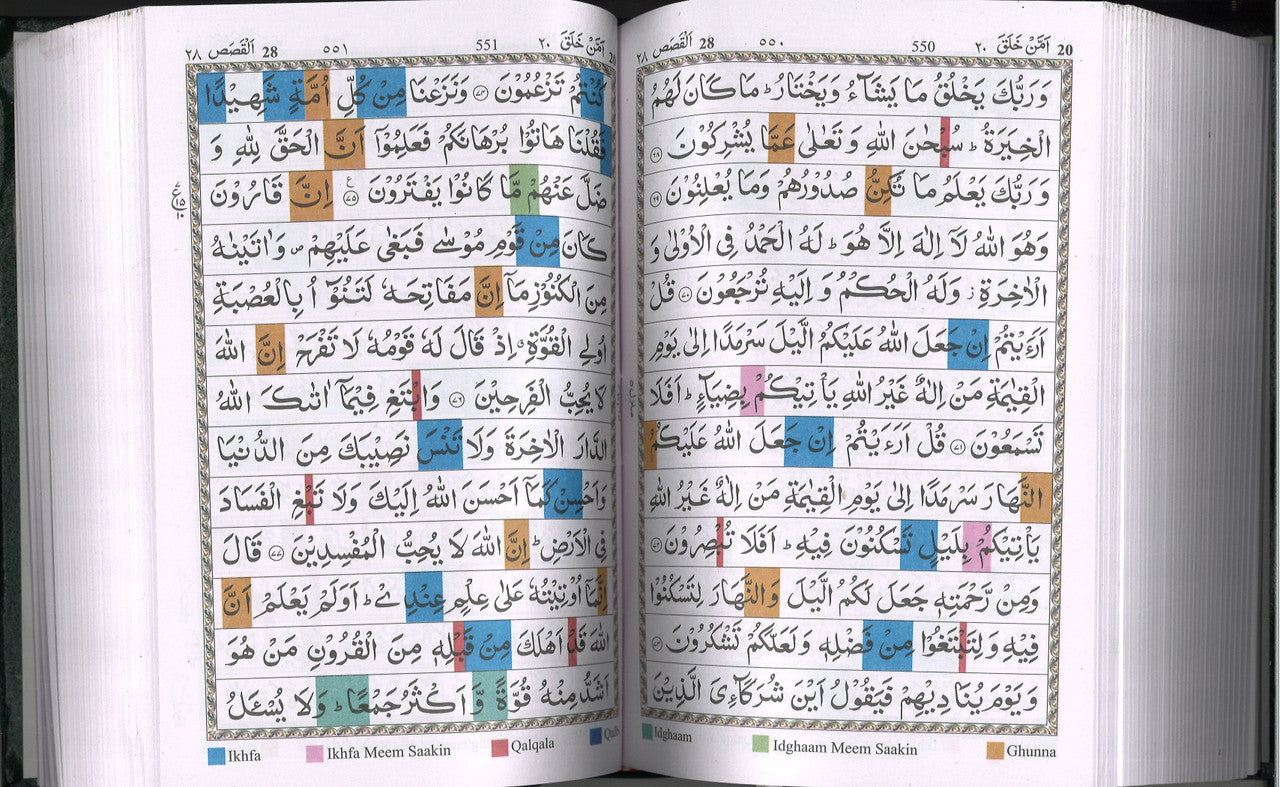 20 اَمَّنۡ خَلَقَ ٢٠ 550 ٥٥٠ 28 اَلۡقَصَصِ ٢٨
وَرَبُّكَ يَخۡلُقُ مَا يَشَآءُ وَيَخۡتَارُ ؕ مَا كَانَ لَهُمُ
الۡخِيَرَةُ ؕ سُبۡحٰنَ اللّٰهِ وَتَعٰلٰى عَمَّا يُشۡرِكُوۡنَ ﴿٦٨﴾
وَرَبُّكَ يَعۡلَمُ مَا تُكِنُّ صُدُوۡرُهُمۡ وَمَا يُعۡلِنُوۡنَ ﴿٦٩﴾
وَهُوَ اللّٰهُ لَاۤ اِلٰهَ اِلَّا هُوَ ؕ لَهُ الۡحَمۡدُ فِى الۡاُوۡلٰى وَ
الۡاٰخِرَةِ وَلَهُ الۡحُكۡمُ وَاِلَيۡهِ تُرۡجَعُوۡنَ ﴿٧٠﴾ قُلۡ
اَرَءَيۡتُمۡ اِنۡ جَعَلَ اللّٰهُ عَلَيۡكُمُ الَّيۡلَ سَرۡمَدًا اِلٰى يَوۡمِ
الۡقِيٰمَةِ مَنۡ اِلٰهٌ غَيۡرُ اللّٰهِ يَاۡتِيۡكُمۡ بِضِيَآءٍ ؕ اَفَلَا
تَسۡمَعُوۡنَ ﴿٧١﴾ قُلۡ اَرَءَيۡتُمۡ اِنۡ جَعَلَ اللّٰهُ عَلَيۡكُمُ
النَّهَارَ سَرۡمَدًا اِلٰى يَوۡمِ الۡقِيٰمَةِ مَنۡ اِلٰهٌ غَيۡرُ اللّٰهِ
يَاۡتِيۡكُمۡ بِلَيۡلٍ تَسۡكُنُوۡنَ فِيۡهِ ؕ اَفَلَا تُبۡصِرُوۡنَ ﴿٧٢﴾
وَمِنۡ رَّحۡمَتِهٖ جَعَلَ لَكُمُ الَّيۡلَ وَالنَّهَارَ لِتَسۡكُنُوۡا
فِيۡهِ وَلِتَبۡتَغُوۡا مِنۡ فَضۡلِهٖ وَلَعَلَّكُمۡ تَشۡكُرُوۡنَ ﴿٧٣﴾
وَيَوۡمَ يُنَادِيۡهِمۡ فَيَقُوۡلُ اَيۡنَ شُرَكَآءِىَ الَّذِيۡنَ
Idghaam Idghaam Meem Saakin Ghunna
اَمَّنۡ خَلَقَ ٢٠ 551 ٥٥١ 28 اَلۡقَصَصِ ٢٨
كُنۡتُمۡ تَزۡعُمُوۡنَ ﴿٧٤﴾ وَنَزَعۡنَا مِنۡ كُلِّ اُمَّةٍ شَهِيۡدًا
فَقُلۡنَا هَاتُوۡا بُرۡهَانَكُمۡ فَعَلِمُوۡۤا اَنَّ الۡحَقَّ لِلّٰهِ وَ
ضَلَّ عَنۡهُمۡ مَّا كَانُوۡا يَفۡتَرُوۡنَ ﴿٧٥﴾ اِنَّ قَارُوۡنَ
كَانَ مِنۡ قَوۡمِ مُوۡسٰى فَبَغٰى عَلَيۡهِمۡ ۪ وَاٰتَيۡنٰهُ
مِنَ الۡكُنُوۡزِ مَاۤ اِنَّ مَفَاتِحَهٗ لَتَنُوۡٓاُ بِالۡعُصۡبَةِ
اُولِى الۡقُوَّةِ اِذۡ قَالَ لَهٗ قَوۡمُهٗ لَا تَفۡرَحۡ اِنَّ اللّٰهَ
لَا يُحِبُّ الۡفَرِحِيۡنَ ﴿٧٦﴾ وَابۡتَغِ فِيۡمَاۤ اٰتٰٮكَ اللّٰهُ
الدَّارَ الۡاٰخِرَةَ وَلَا تَنۡسَ نَصِيۡبَكَ مِنَ الدُّنۡيَا
وَاَحۡسِنۡ كَمَاۤ اَحۡسَنَ اللّٰهُ اِلَيۡكَ وَلَا تَبۡغِ الۡفَسَادَ
فِى الۡاَرۡضِ ؕ اِنَّ اللّٰهَ لَا يُحِبُّ الۡمُفۡسِدِيۡنَ ﴿٧٧﴾ قَالَ
اِنَّمَاۤ اُوۡتِيۡتُهٗ عَلٰى عِلۡمٍ عِنۡدِىۡ ؕ اَوَلَمۡ يَعۡلَمۡ اَنَّ
اللّٰهَ قَدۡ اَهۡلَكَ مِنۡ قَبۡلِهٖ مِنَ الۡقُرُوۡنِ مَنۡ هُوَ
اَشَدُّ مِنۡهُ قُوَّةً وَّاَكۡثَرُ جَمۡعًا ؕ وَلَا يُسۡـَٔلُ
Ikhfa Ikhfa Meem Saakin Qalqala